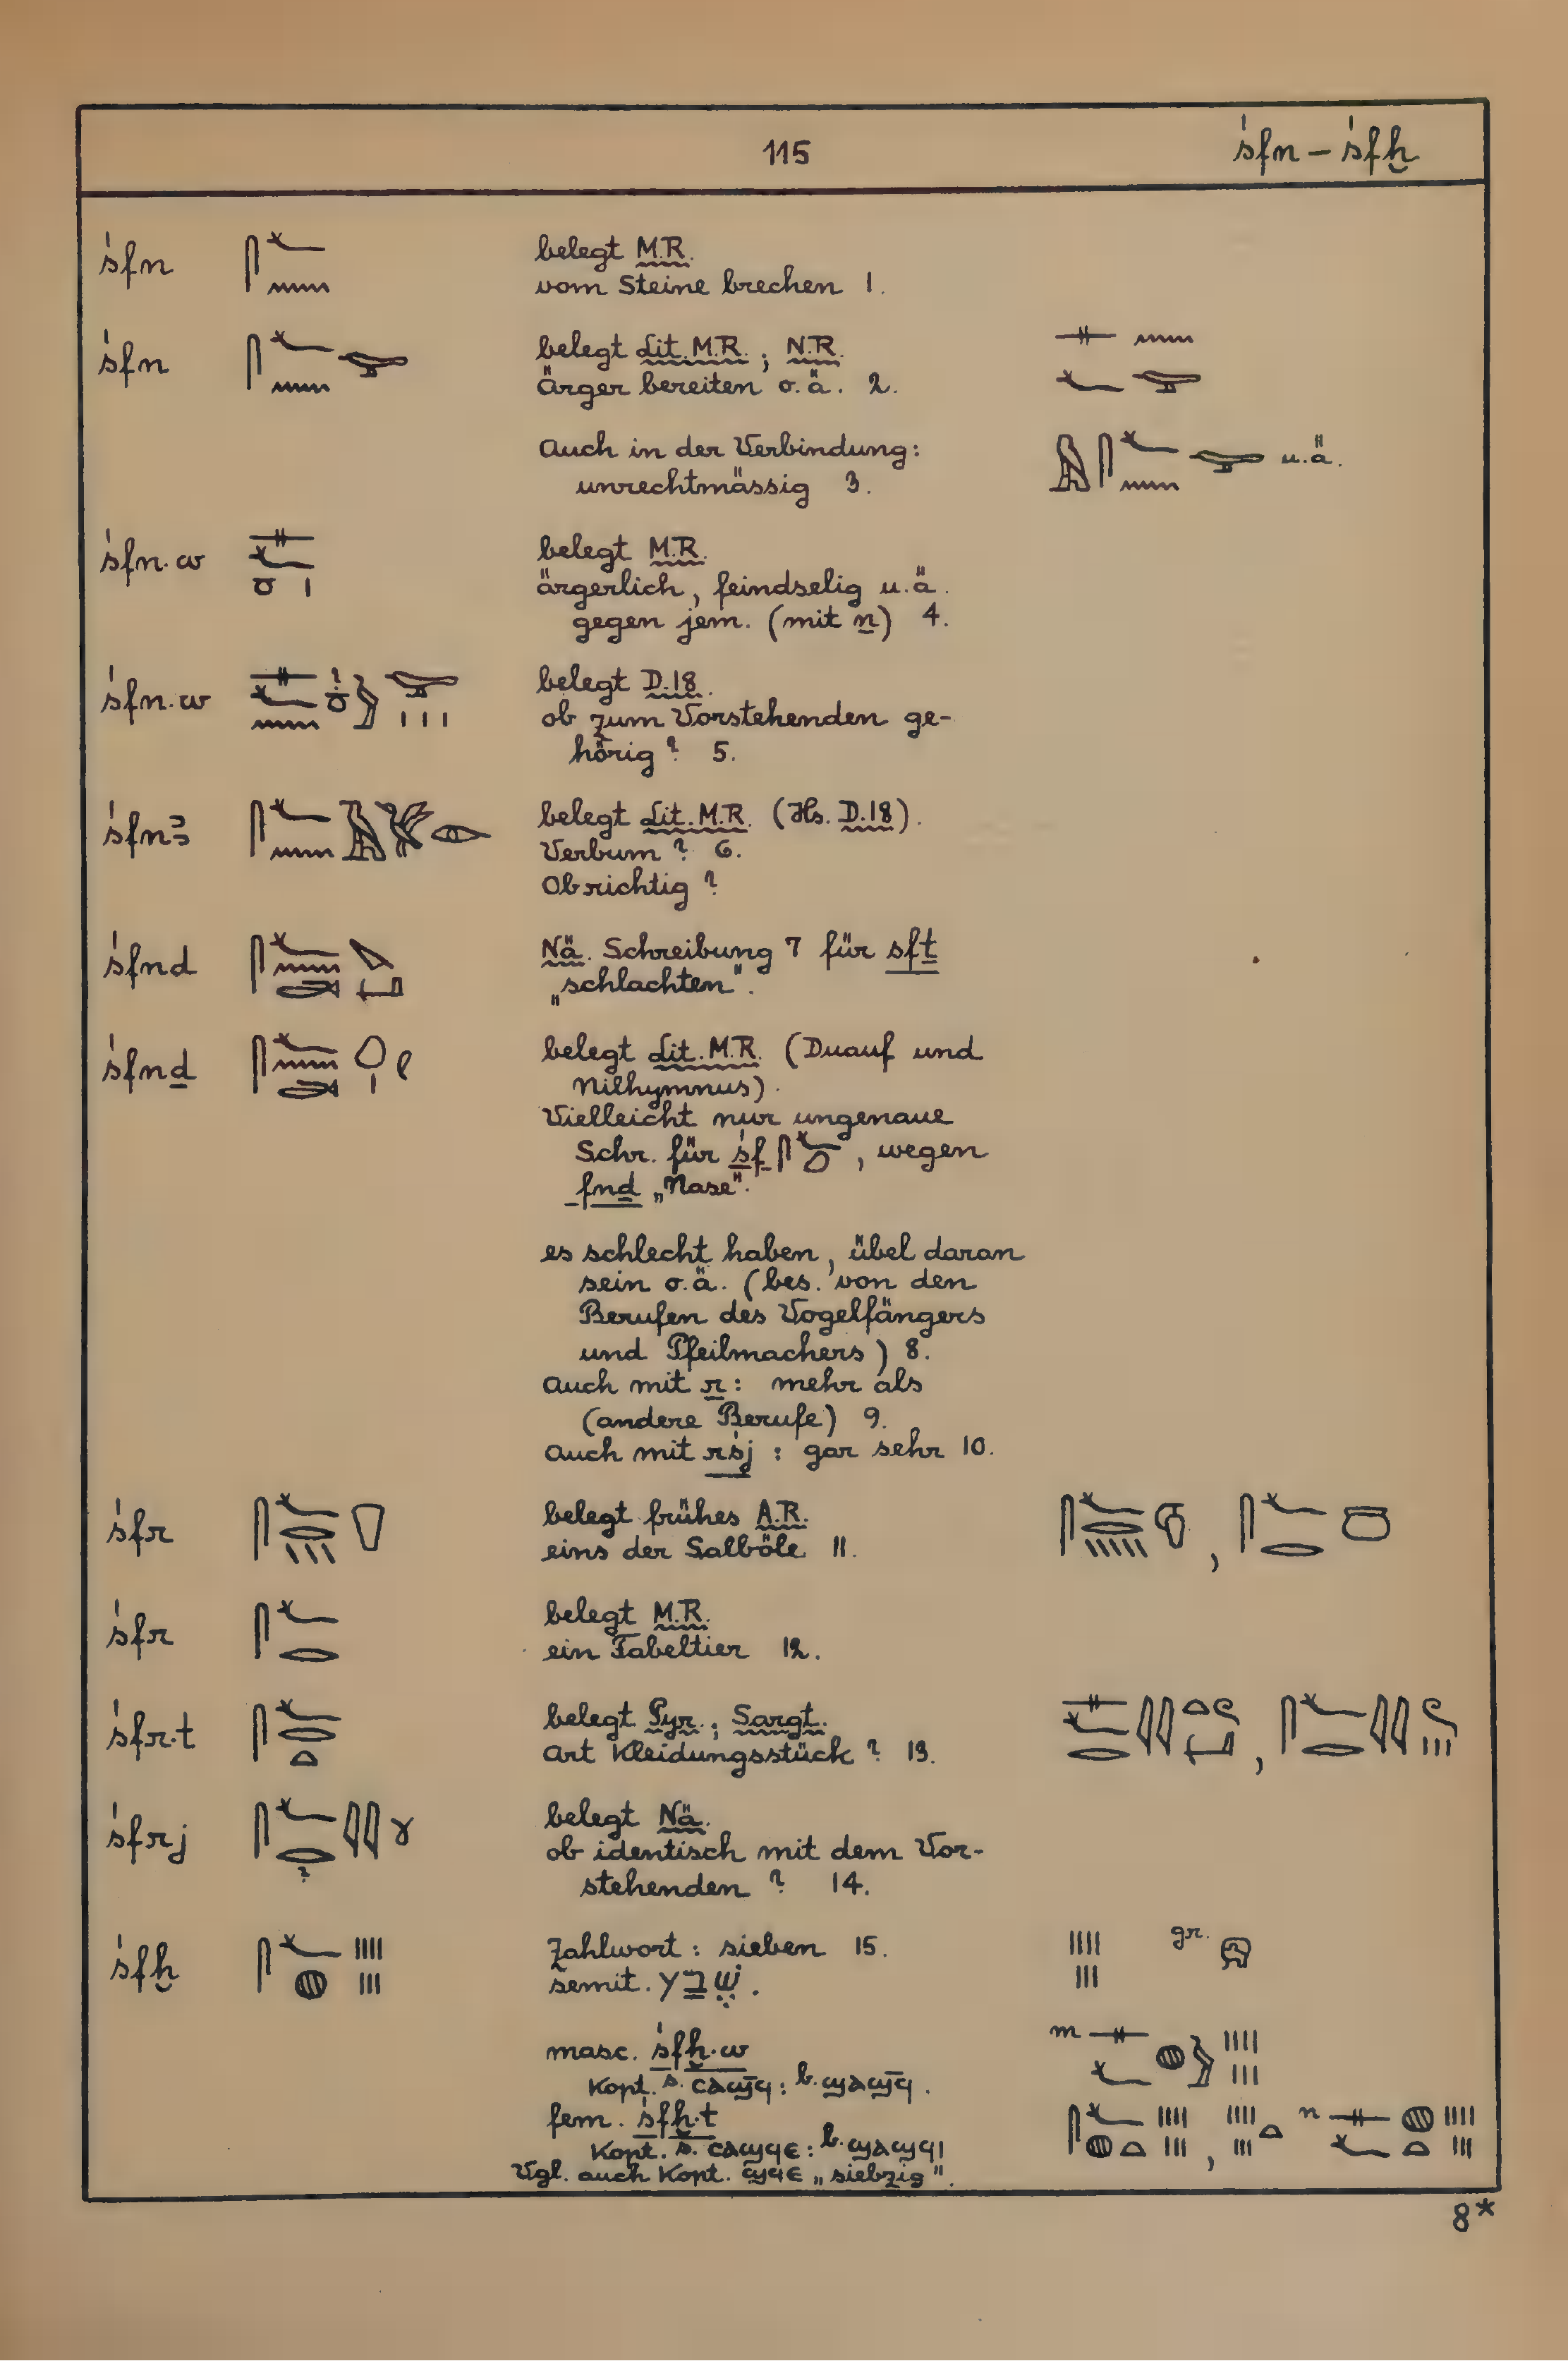 115
śfn – śfẖ
śfn
belegt M.R.
vom Steine brechen 1.
śfn
belegt Lit. M.R.; N.R.
Ärger bereiten o.ä. 2.
Auch in der Verbindung: u.ä.
unrechtmässig 3.
śfn·w
belegt M.R.
ärgerlich, feindselig u.ä.
gegen jem. (mit n) 4.
śfn·w
belegt D.18.
ob zum Vorstehenden ge-
hörig? 5.
śfnꜣ
belegt Lit. M.R. (Hs. D.18).
Verbum? 6.
Ob richtig?
śfnd
Nä. Schreibung 7 für sfṯ
„schlachten".
śfnḏ
belegt Lit. M.R. (Duauf und
Nilhymnus).
Vielleicht nur ungenaue
Schr. für śf, wegen
fnḏ „Nase".
es schlecht haben, übel daran
sein o.ä. (bes. von den
Berufen des Vogelfängers
und Pfeilmachers) 8.
Auch mit r: mehr als
(andere Berufe) 9.
Auch mit rśj: gar sehr 10.
śfr
belegt frühes A.R.
eins der Salböle 11.
śfr
belegt M.R.
ein Fabeltier 12.
śfr·t
belegt Pyr.; Sargt.
Art Kleidungsstück? 13.
śfrj
belegt Nä.
ob identisch mit dem Vor-
stehenden? 14.
śfẖ
Zahlwort: sieben 15. gr.
semit. שֶׁבַע.
masc. śfẖ·w m
Kopt. S. ⲥⲁϣϥ̄: B. ϣⲁϣϥ̄.
fem. śfẖ·t n
Kopt. S. ⲥⲁϣϥⲉ: B. ϣⲁϣϥⲓ
Vgl. auch Kopt. ϣϥⲉ „siebzig".
8*